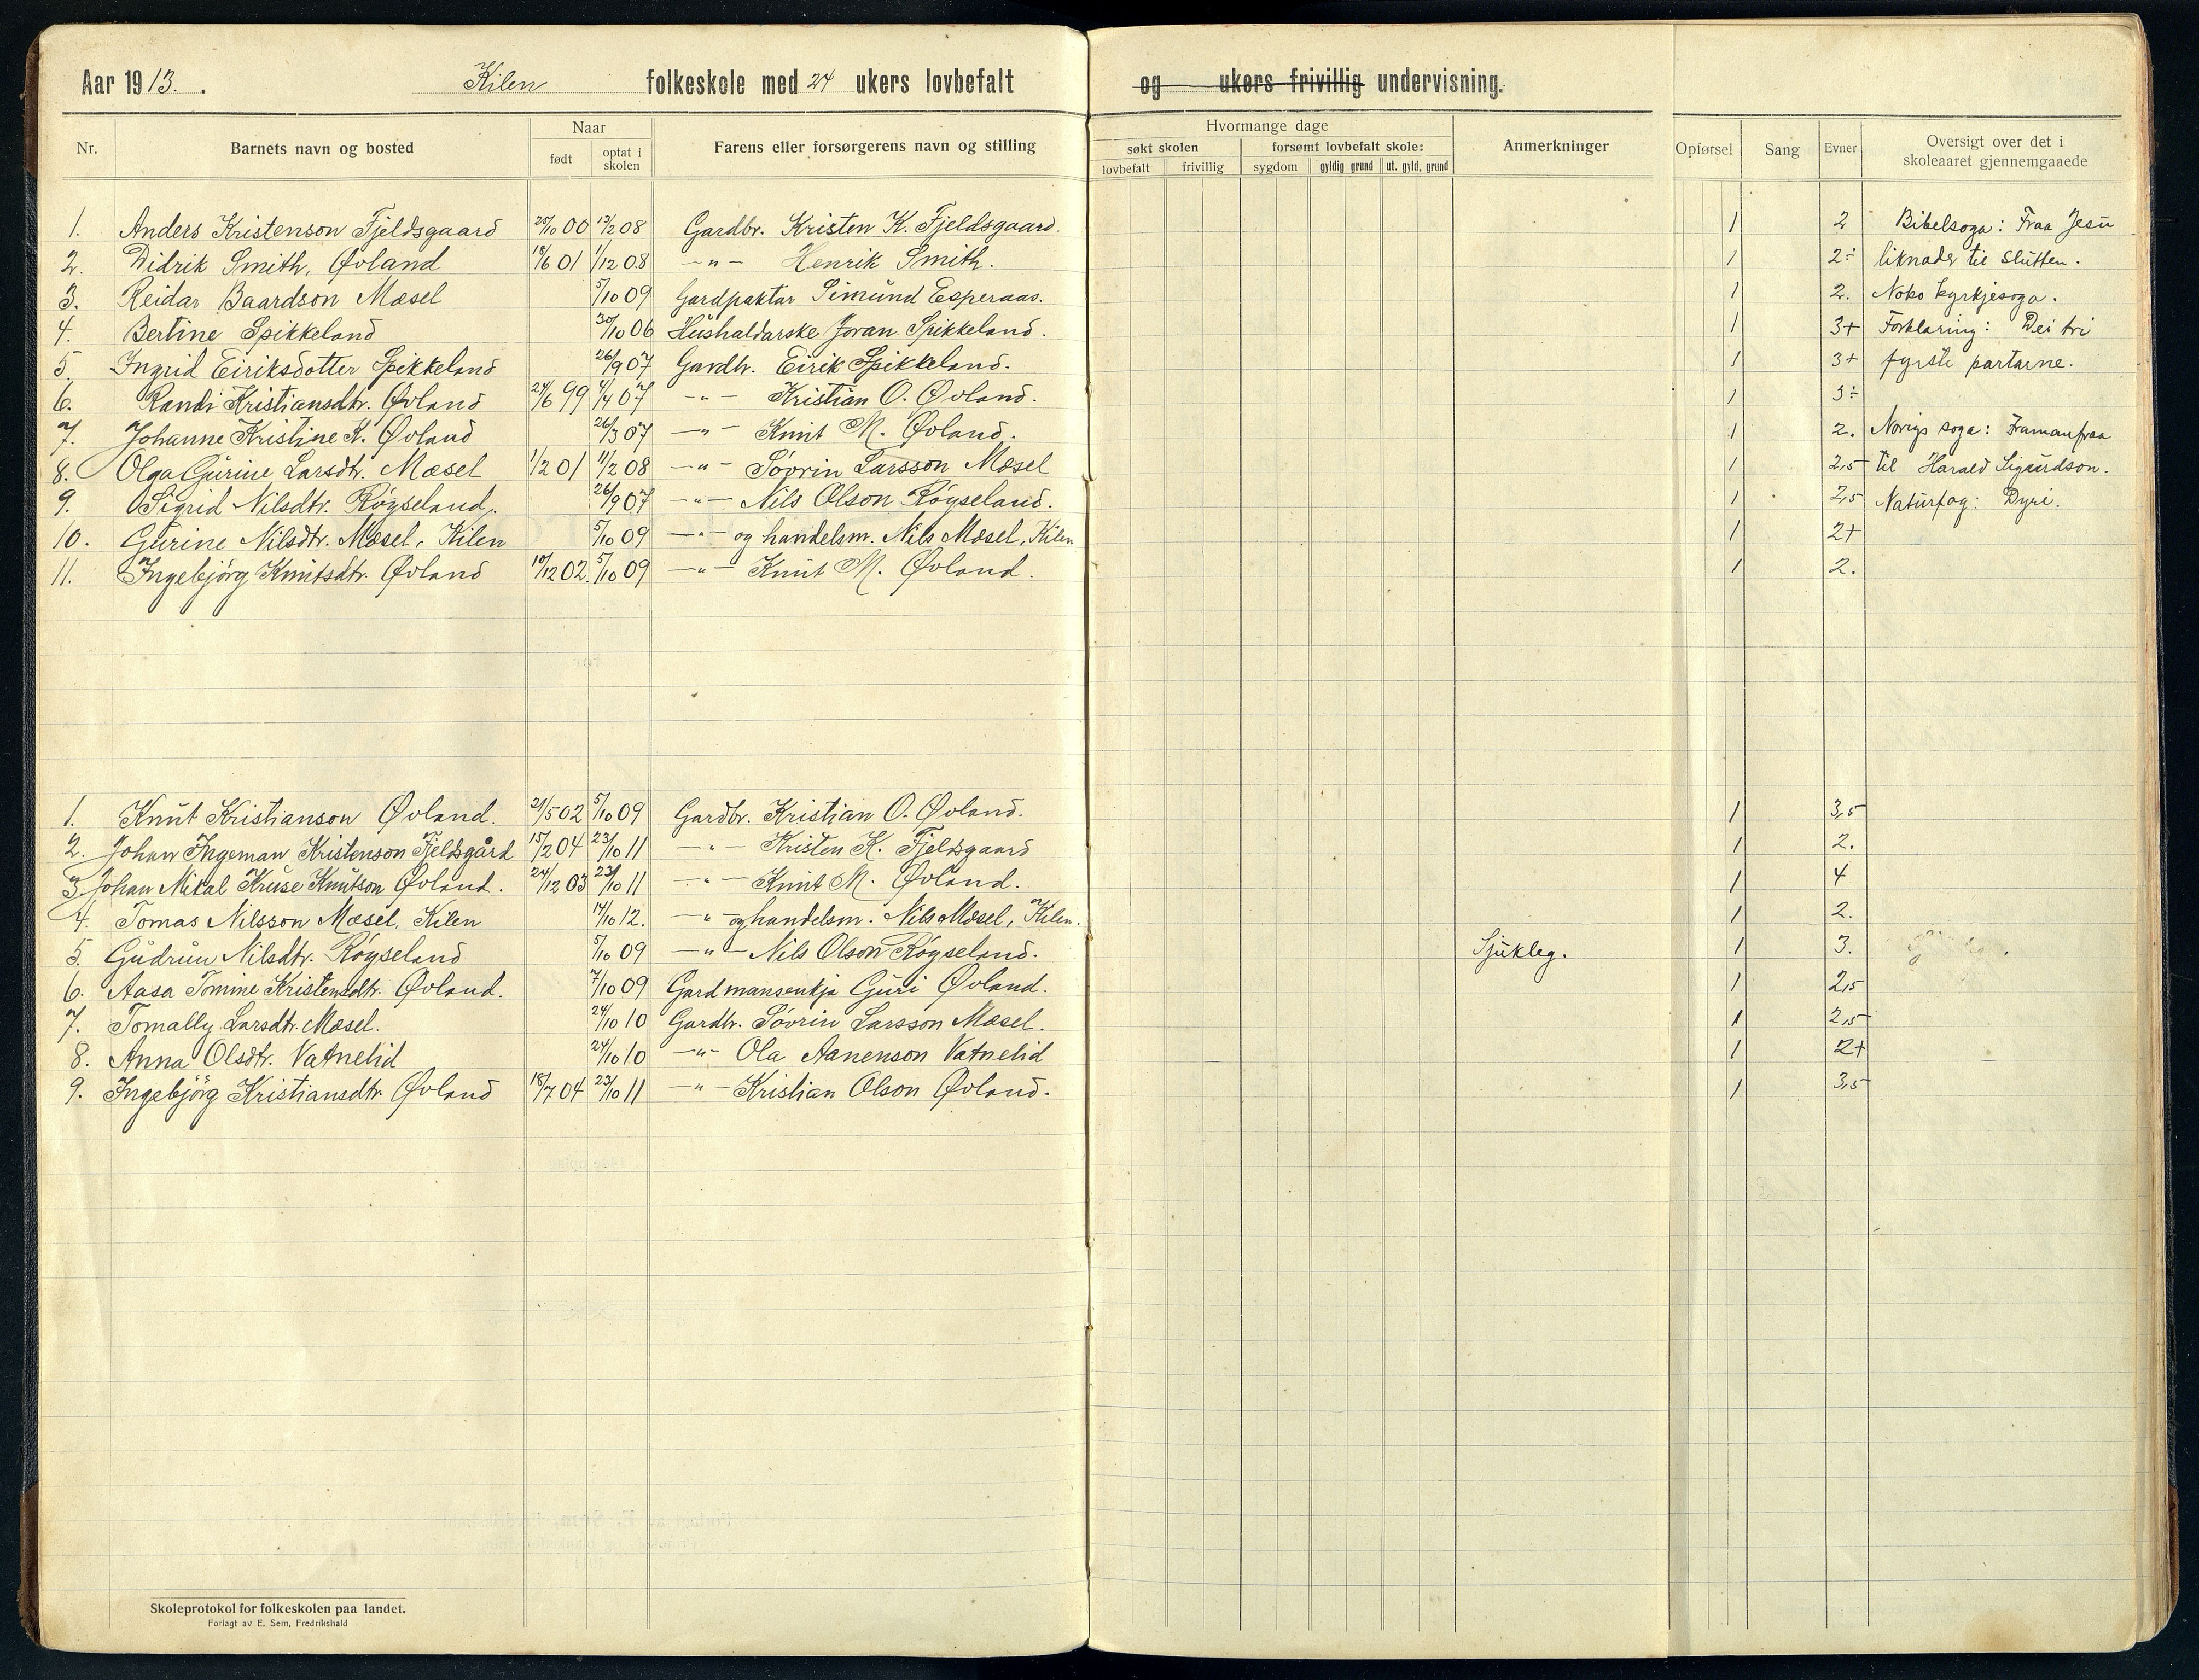 Aar 1913. Kilen folkeskole med 24 ukers lovbefalt og ukers frivillig undervisning.
Nr. Barnets navn og bosted Naar Farens eller forsørgerens navn og stilling Hvormange dage Anmerkninger Opførsel Sang Evner Oversigt over det i skoleaaret gjennemgaaede
født optat i skolen søkt skolen forsømt lovbefalt skole:
lovbefalt frivillig sygdom gyldig grund ut. gyld. grund
1. Anders Kristenson Fjeldsgaard 25/10 00 13/2 08 Gardbr. Kristen K. Fjeldsgaard. 1 2 Bibelsoga: Fraa Jesu
2. Didrik Smith, Øvland 18/6 01 1/12 08 —"— Henrik Smith. 1 2÷ liknader til slutten.
3. Reidar Baardson Mæsel 5/10 09 Gardpaktar Simund Esperaas. 1 2. Noko kyrkjesoga.
4. Bertine Spikkeland 30/10 06 Hushaldarske Joran Spikkeland. 1 3+ Forklaring: Dei tri
5. Ingrid Eiriksdotter Spikkeland 26/9 07 Gardbr. Eirik Spikkeland. 1 3+ fyrste partarne.
6. Randi Kristiansdtr. Øvland 24/6 99 4/4 07 —"— Kristian O. Øvland. 1 3÷
7. Johanne Kristine K. Øvland 26/3 07 —"— Knut M. Øvland. 1 2. Norigs soga: Framanfraa
8. Olga Gurine Larsdtr. Mæsel 1/2 01 11/2 08 —"— Sövrin Larsson Mæsel 1 2,5 til Harald Sigurdson.
9. Sigrid Nilsdtr. Röyseland. 26/9 07 —"— Nils Olson Röyseland. 1 2,5 Naturfag: Dyri.
10. Gurine Nilsdtr. Mæsel, Kilen 5/10 09 —"— og handelsm. Nils Mæsel, Kilen 1 2+
11. Ingebjörg Knutsdtr. Øvland 10/12 02. 5/10 09 —"— Knut M. Øvland. 1 2.
1. Knut Kristianson Øvland. 21/5 02 5/10 09 Gardbr. Kristian O. Øvland. 1 3,5
2. Johan Ingeman Kristenson Fjeldsgård 15/2 04 23/10 11 —"— Kristen K. Fjeldsgaard 1 2.
3. Johan Mikal Kruse Knutson Øvland. 24/12 03 23/10 11 —"— Knut M. Øvland. 1 4
4. Tomas Nilsson Mæsel, Kilen 14/10 12. —"— og handelsm. Nils Mæsel, Kilen. 1 2.
5. Gudrun Nilsdtr. Röyseland 5/10 09 —"— Nils Olson Röyseland. Sjukleg. 1 3.
6. Aasa Tomine Kristensdtr. Øvland. 7/10 09 Gardmansenkja Guri Øvland. 1 2,5
7. Tomally Larsdtr. Mæsel. 24/10 10 Gardbr. Sövrin Larsson Mæsel. 1 2,5
8. Anna Olsdtr. Vatnelid 24/10 10 —"— Ola Aanenson Vatnelid 1 2+
9. Ingebjörg Kristiansdtr. Øvland 18/7 04 23/10 11 —"— Kristian Olson Øvland. 1 3,5
Skoleprotokol for folkeskolen paa landet.
Forlagt av E. Sem, Fredrikshald